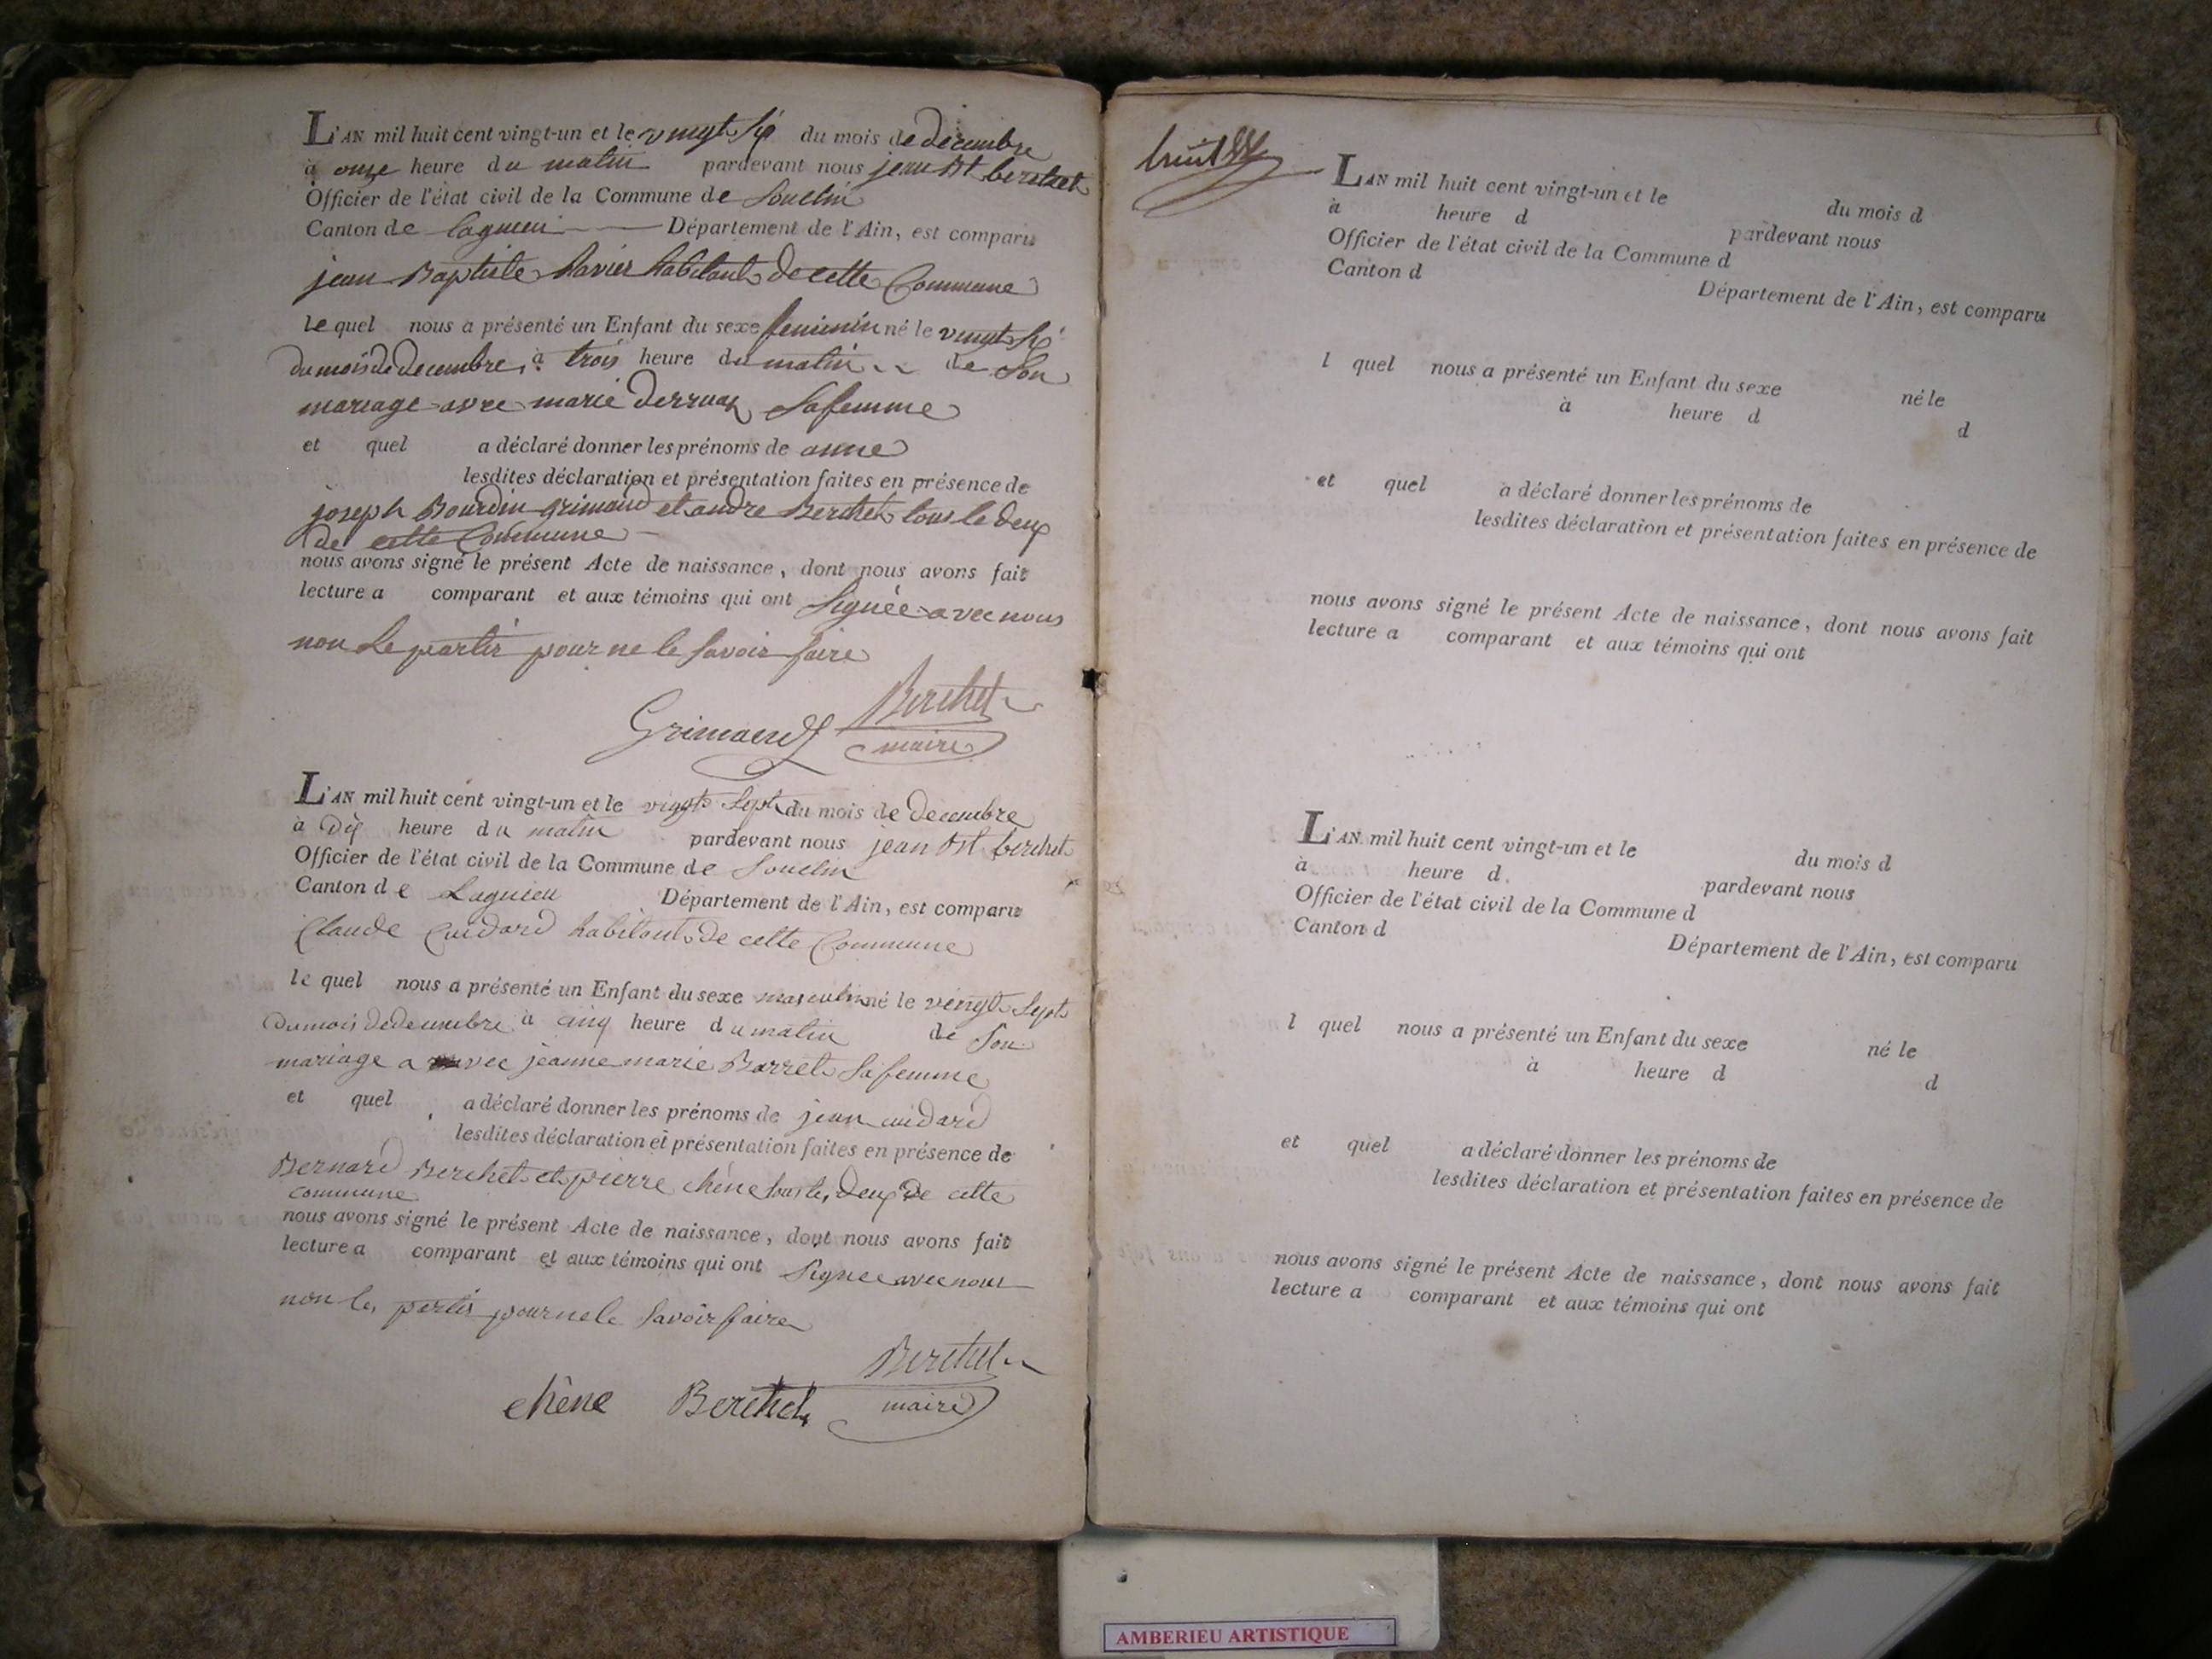 L'AN mil huit cent vingt-un et le vingt six du mois de decembre
à onze heure du matin pardevant nous jean Bt berchet
Officier de l'état civil de la Commune de Souclin
Canton de lagnieu Département de l'Ain, est comparu
jean Baptiste havier habitant de cette Commune
le quel nous a présenté un Enfant du sexe feminin né le vingt six
du mois de decembre, à trois heure du matin de Son
mariage avec marie Derruaz Sa femme
et quel a déclaré donner les prénoms de anne
lesdites déclaration et présentation faites en présence de
joseph Bourdin grimaud et andre Berchet tous le deux
de cette Commune
nous avons signé le présent Acte de naissance, dont nous avons fait
lecture a comparant et aux témoins qui ont Signée avec nous
non le partir pour ne le Savoir faire
Grimaud Berchet
maire
L'AN mil huit cent vingt-un et le vingt Sept du mois de decembre
à Dix heure du matin pardevant nous jean Bt berchet
Officier de l'état civil de la Commune de Souclin
Canton de Lagnieu Département de l'Ain, est comparu
Claude Cuidard habitant de cette Commune
le quel nous a présenté un Enfant du sexe masculin né le vingt Sept
du mois de decembre à cinq heure du matin de Son
mariage avec jeanne marie Barret Sa femme
et quel a déclaré donner les prénoms de jean cuidard
lesdites déclaration et présentation faites en présence de
Bernard Berchet et pierre chêne tous les deux de cette
commune
nous avons signé le présent Acte de naissance, dont nous avons fait
lecture a comparant et aux témoins qui ont Signee avec nous
non les partir pour ne le Savoir faire
chêne Berchet Berchet
maire
huit
L'AN mil huit cent vingt-un et le du mois d
à heure d pardevant nous
Officier de l'état civil de la Commune d
Canton d Département de l'Ain, est comparu
l quel nous a présenté un Enfant du sexe né le
à heure d d
et quel a déclaré donner les prénoms de
lesdites déclaration et présentation faites en présence de
nous avons signé le présent Acte de naissance, dont nous avons fait
lecture a comparant et aux témoins qui ont
L'AN mil huit cent vingt-un et le du mois d
à heure d pardevant nous
Officier de l'état civil de la Commune d
Canton d Département de l'Ain, est comparu
l quel nous a présenté un Enfant du sexe né le
à heure d d
et quel a déclaré donner les prénoms de
lesdites déclaration et présentation faites en présence de
nous avons signé le présent Acte de naissance, dont nous avons fait
lecture a comparant et aux témoins qui ont
AMBERIEU ARTISTIQUE